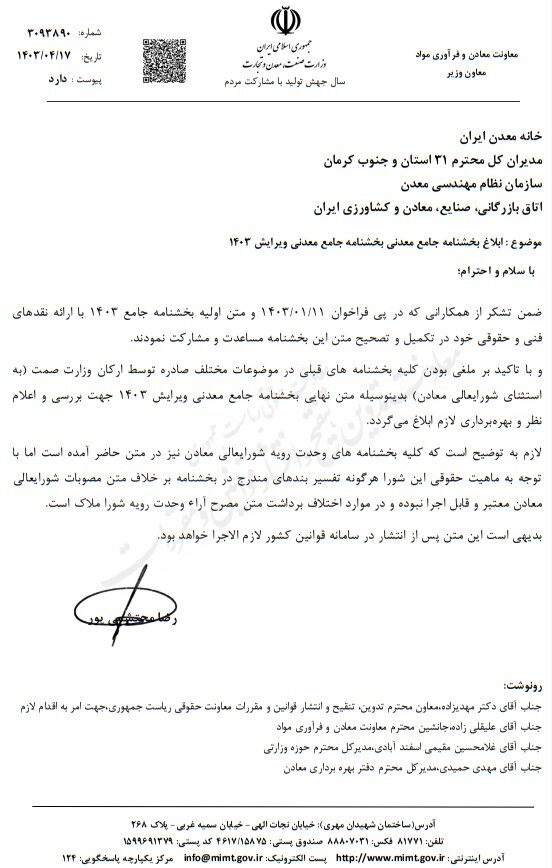 جمهوری اسلامی ایران
وزارت صنعت، معدن و تجارت
سال جهش تولید با مشارکت مردم
شماره: ۳۰۹۳۸۹۰
تاریخ: ۱۴۰۳/۰۴/۱۷
پیوست : دارد
معاونت معادن و فرآوری مواد
معاون وزیر
خانه معدن ایران
مدیران کل محترم ۳۱ استان و جنوب کرمان
سازمان نظام مهندسی معدن
اتاق بازرگانی، صنایع، معادن و کشاورزی ایران
موضوع : ابلاغ بخشنامه جامع معدنی بخشنامه جامع معدنی ویرایش ۱۴۰۳
با سلام و احترام؛
ضمن تشکر از همکارانی که در پی فراخوان ۱۴۰۳/۰۱/۱۱ و متن اولیه بخشنامه جامع ۱۴۰۳ با ارائه نقدهای
فنی و حقوقی خود در تکمیل و تصحیح متن این بخشنامه مساعدت و مشارکت نمودند.
و با تاکید بر ملغی بودن کلیه بخشنامه های قبلی در موضوعات مختلف صادره توسط ارکان وزارت صمت (به
استثنای شورایعالی معادن) بدینوسیله متن نهایی بخشنامه جامع معدنی ویرایش ۱۴۰۳ جهت بررسی و اعلام
نظر و بهره‌برداری لازم ابلاغ می‌گردد.
لازم به توضیح است که کلیه بخشنامه های وحدت رویه شورایعالی معادن نیز در متن حاضر آمده است اما با
توجه به ماهیت حقوقی این شورا هرگونه تفسیر بندهای مندرج در بخشنامه بر خلاف متن مصوبات شورایعالی
معادن معتبر و قابل اجرا نبوده و در موارد اختلاف برداشت متن مصرح آراء وحدت رویه شورا ملاک است.
بدیهی است این متن پس از انتشار در سامانه قوانین کشور لازم الاجرا خواهد بود.
رضا محتشمی پور
رونوشت:
جناب آقای دکتر مهدیزاده،معاون محترم تدوین، تنقیح و انتشار قوانین و مقررات معاونت حقوقی ریاست جمهوری،جهت امر به اقدام لازم
جناب آقای علیقلی زاده،جانشین محترم معاونت معادن و فرآوری مواد
جناب آقای غلامحسین مقیمی اسفند آبادی،مدیرکل محترم حوزه وزارتی
جناب آقای مهدی حمیدی،مدیرکل محترم دفتر بهره برداری معادن
آدرس(ساختمان شهیدان مهری): خیابان نجات الهی - خیابان سمیه غربی - پلاک ۲۶۸
تلفن: ۸۱۷۷۱ فکس: ۸۸۸۰۷۰۳۱ صندوق پستی: ۴۶۱۷/۱۵۸۷۵ کد پستی: ۱۵۹۹۶۹۱۳۷۹
آدرس اینترنتی: http://www.mimt.gov.ir پست الکترونیک: info@mimt.gov.ir مرکز یکپارچه پاسخگویی: ۱۲۴